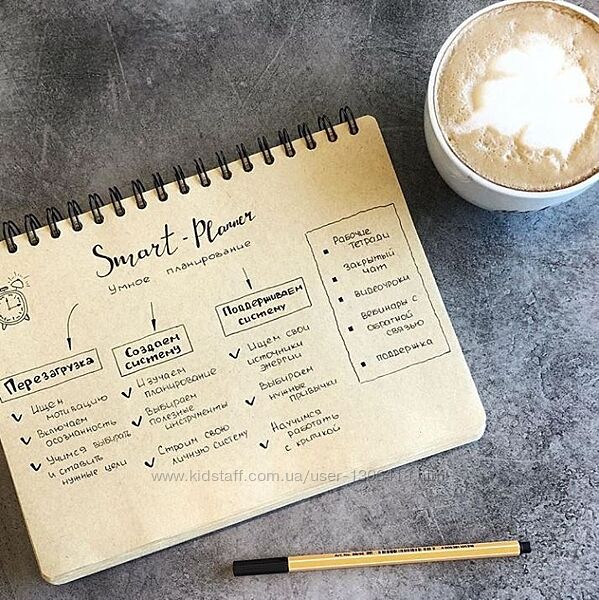 Smart-Planner
Умное планирование
Перезагрузка
Ищем
мотивацию
Включаем
осознанность
Учимся выбирать
и ставить
нужные цели
Создаем
систему
Изучаем
планирование
Выбираем
полезные
инструменты
Строим свою
личную систему
Поддерживаем
систему
Ищем свои
источники
энергии
Выбираем
нужные
привычки
Научимся
работать
с критикой
Рабочие
тетради
Закрытый
чат
Видеоуроки
Вебинары с
обратной
связью
поддержка
www.kidstaff.com.ua/user-